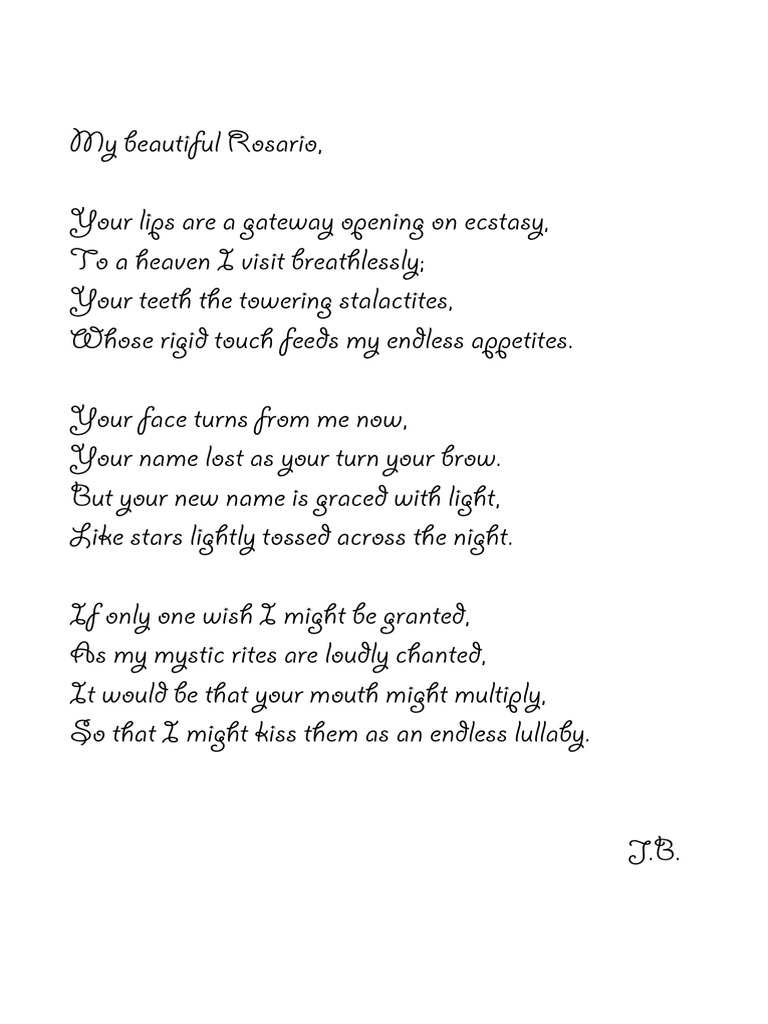 My beautiful Rosario,
Your lips are a gateway opening on ecstasy,
To a heaven I visit breathlessly;
Your teeth the towering stalactites,
Whose rigid touch feeds my endless appetites.
Your face turns from me now,
Your name lost as your turn your brow.
But your new name is graced with light,
Like stars lightly tossed across the night.
If only one wish I might be granted,
As my mystic rites are loudly chanted,
It would be that your mouth might multiply,
So that I might kiss them as an endless lullaby.
J.B.